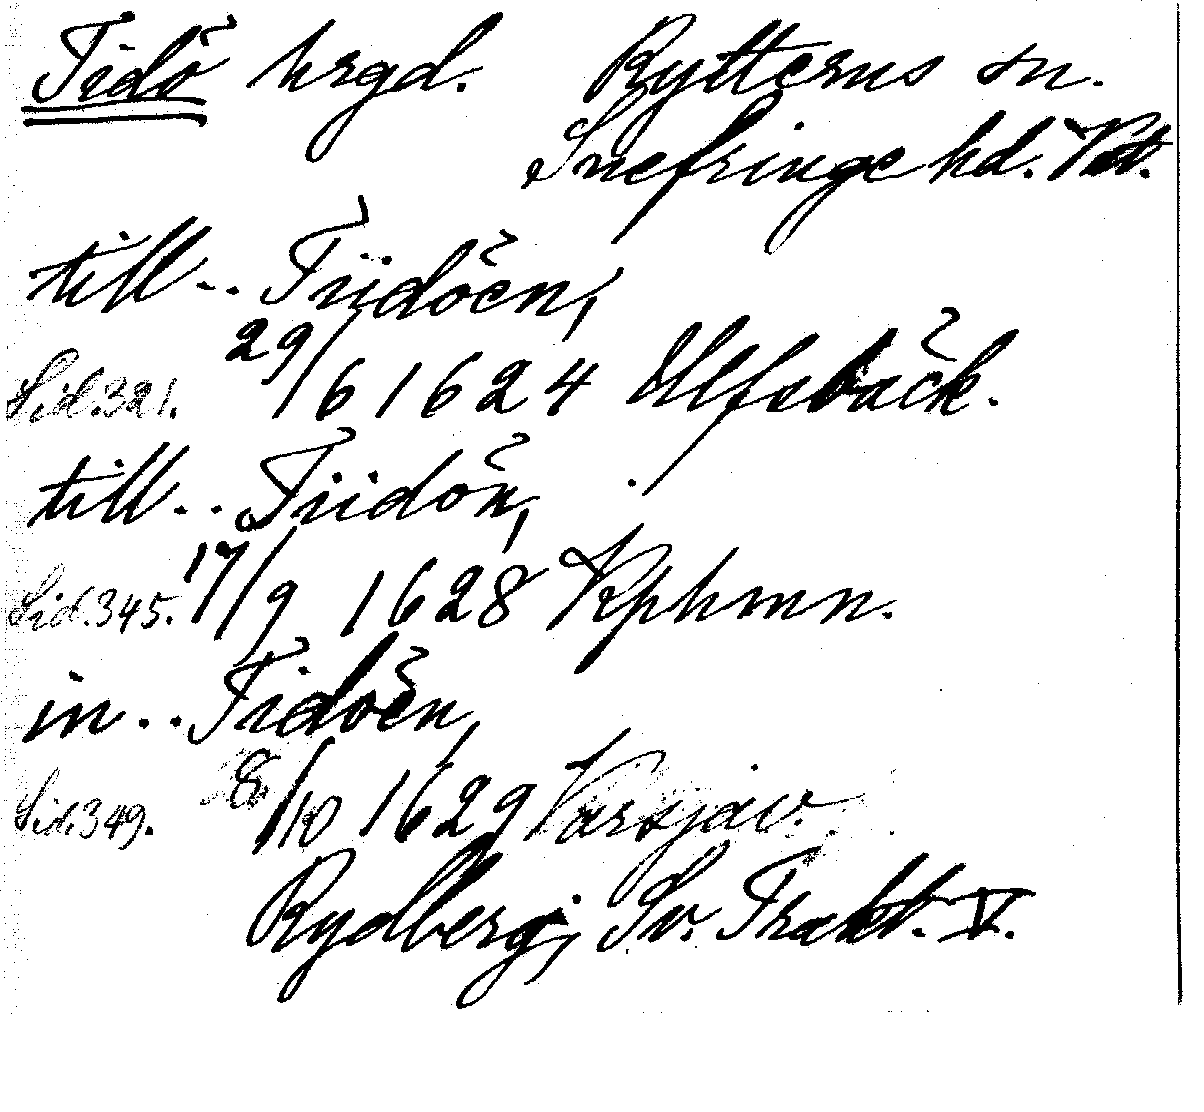 Tidö hrgd. Rytterns sn.
Snefringe hd. Vstm.
till.. Tiidöen,
Sid. 321. 29/6 1624 Ulfsbäck.
till... Tiidön,
Sid. 345. 17/9 1628 Kphmn.
in... Tidöen,
Sid. 349. 8/10 1629 Varsjav.
Rydberg, Sv. Trakt. V.